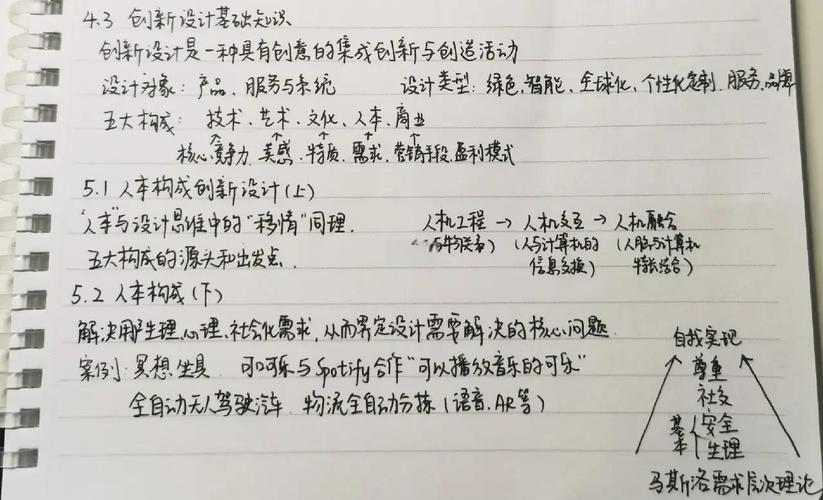 4.3 创新设计基础知识
创新设计是一种具有创意的集成创新与创造活动
设计对象：产品、服务与系统 设计类型：绿色、智能、全球化、个性化定制、服务、品牌
五大构成：技术、艺术、文化、人本、商业
↑ ↑ ↑ ↑ ↑
核心竞争力、美感、特质、需求、营销手段、盈利模式
5.1 人本构成创新设计（上）
"人本"与设计思维中的"移情"同理.
人机工程 → 人机交互 → 人机融合
五大构成的源头和出发点.
与物关系） （人与计算机的信息交换） （人脑与计算机特长结合）
5.2 人本构成（下）
解决用户生理、心理、社会化需求，从而界定设计需要解决的核心问题.
案例：冥想坐具 可口可乐与Spotify合作"可以播放音乐的可乐"
全自动无人驾驶汽车 物流全自动分拣（语音、AR等）
自我实现
尊重
社交
基本
安全
生理
马斯洛需求层次理论